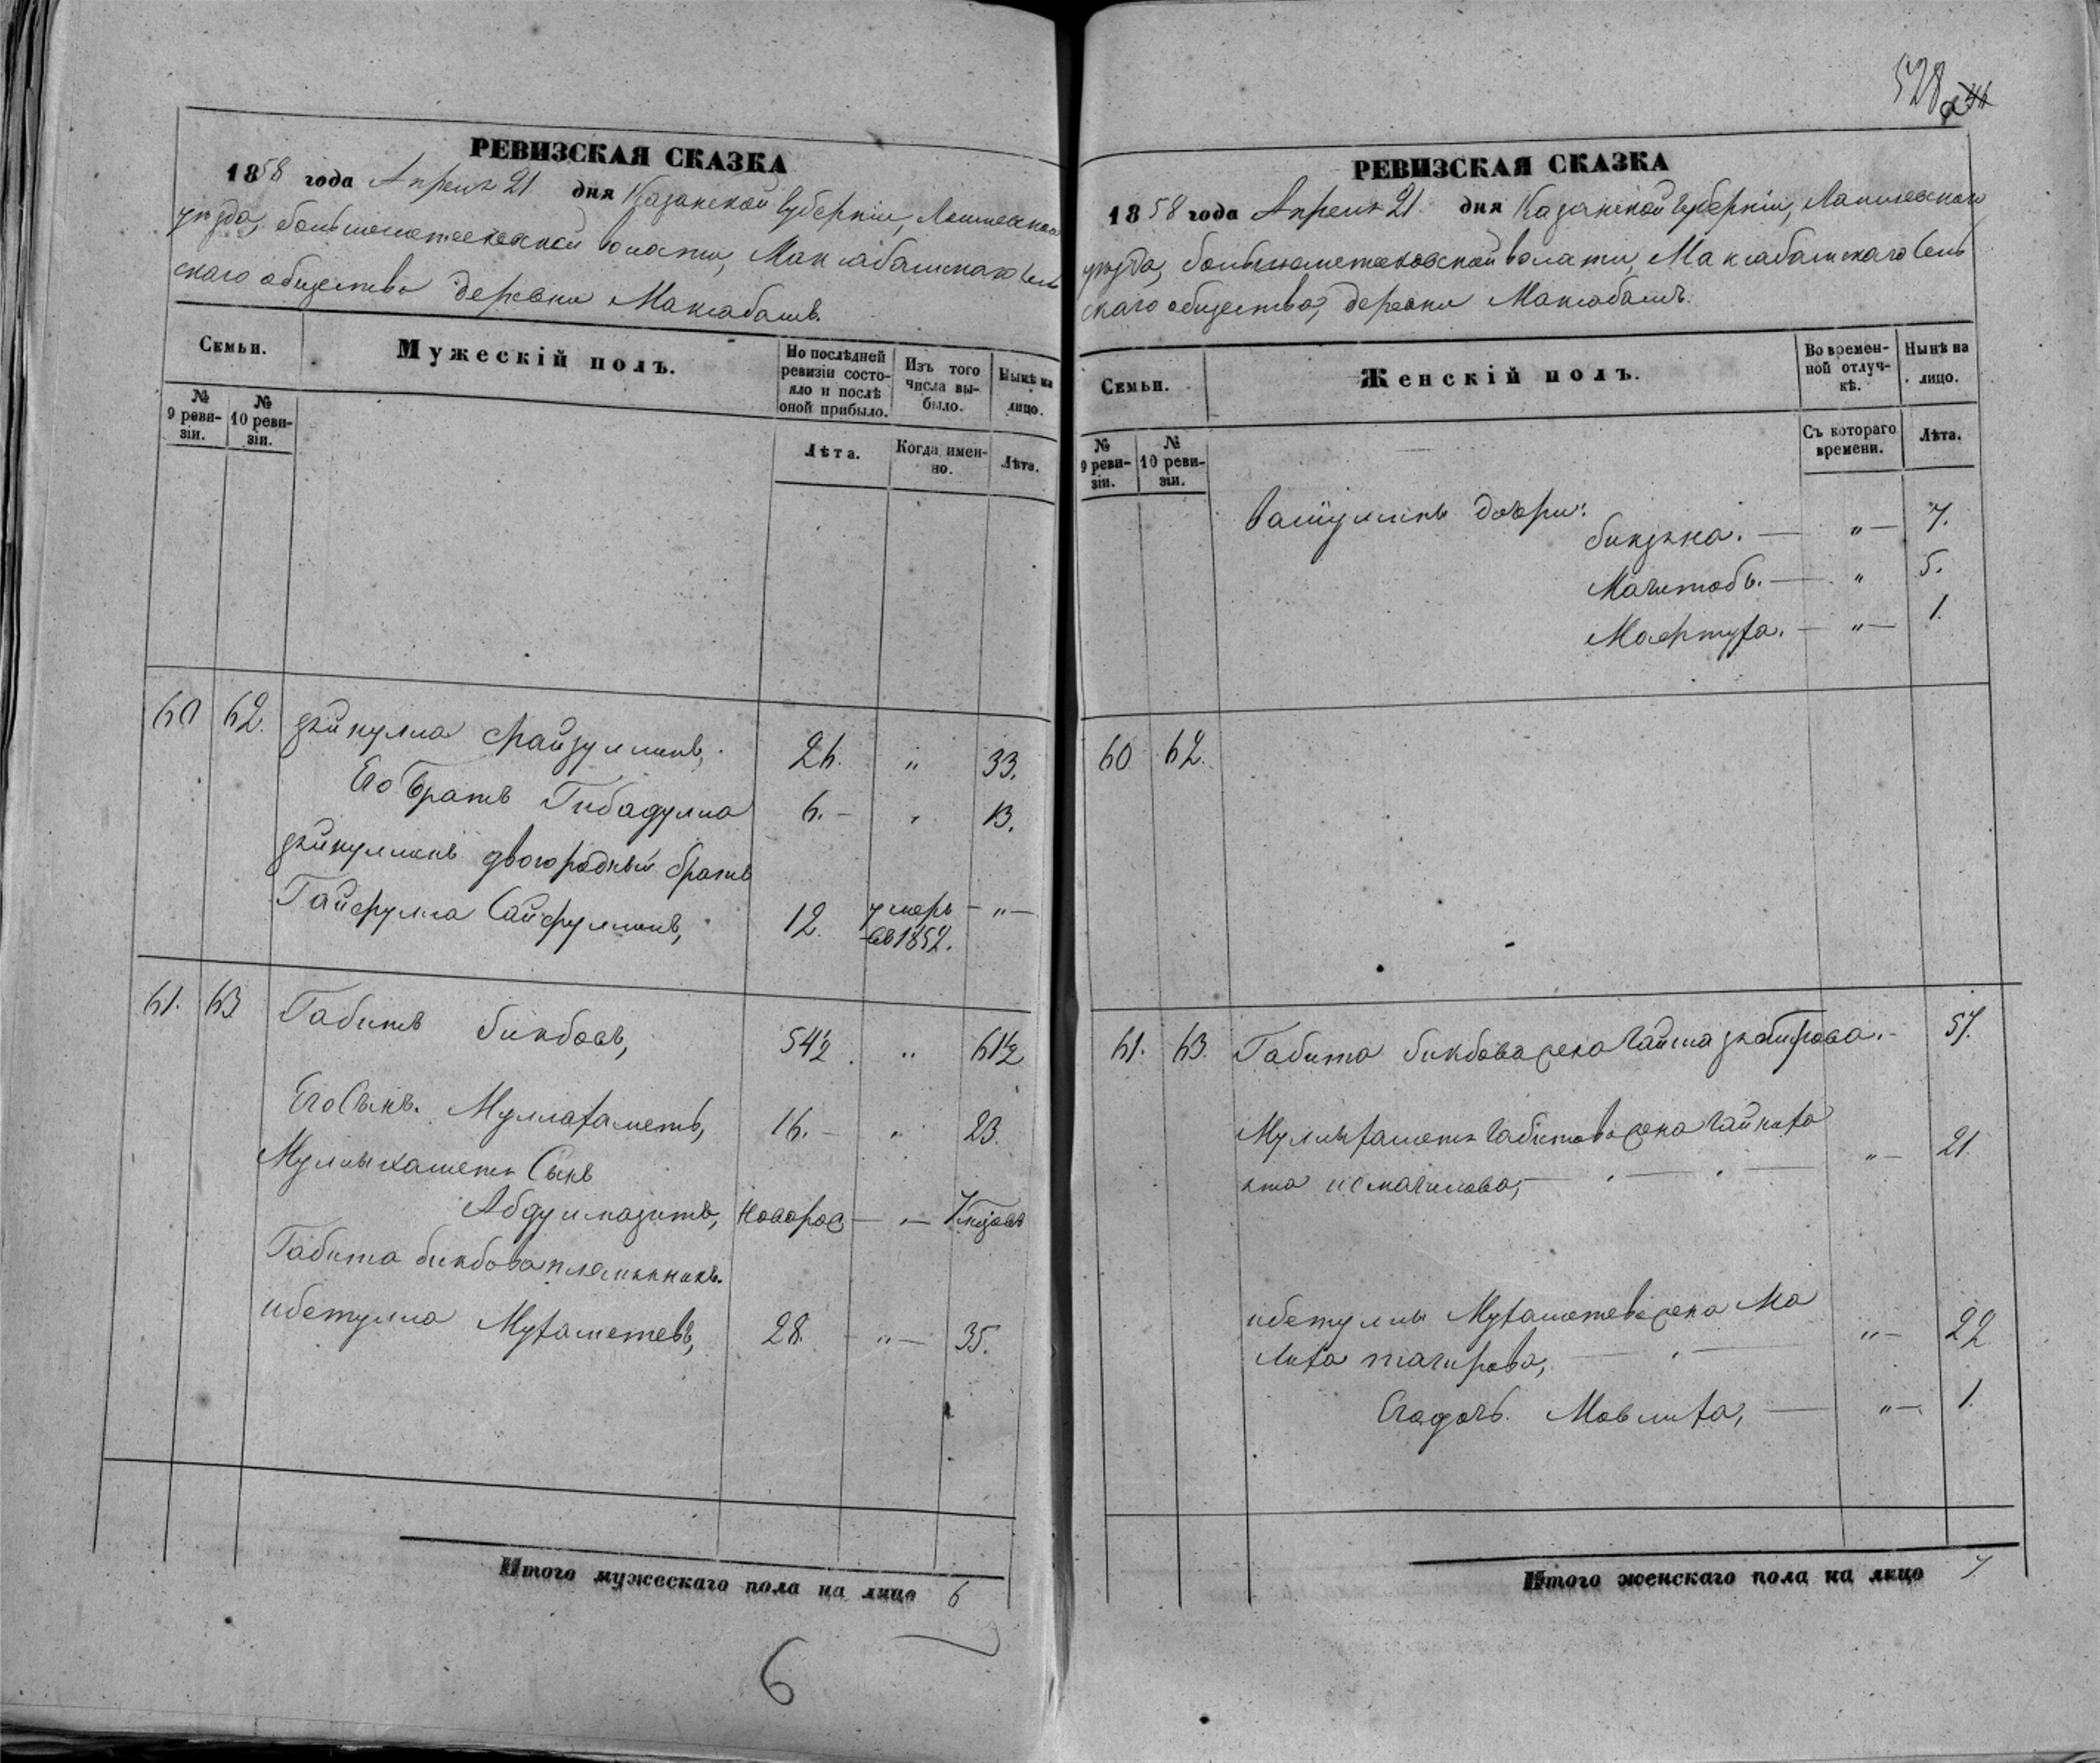 РЕВИЗСКАЯ СКАЗКА
1858 года Апреля 21 дня Казанской Губерніи, Лаишевскаго
уезда, большеметесковской волости, Максабашскаго Сель
скаго общества деревни Максабашъ.
Семьи.
Мужескій полъ.
По послѣдней ревизіи состояло и послѣ оной прибыло.
Изъ того числа выбыло.
Нынѣ на лицо.
№ 9 ревизіи.
№ 10 ревизіи.
Лѣта.
Когда именно.
Лѣта.
60 62. Зейнулла Файзуллинъ, 26. " 33.
Его братъ Гибадулла 6. — " 13.
Зейнуллинъ двоюродный братъ
Гайфулла Сайфуллинъ, 12. умеръ — " —
въ 1852.
61. 63 Габитъ бикбовъ, 54½ " 61½
Его Сынъ. Муллахаметъ, 16. — " 23.
Муллыхаметя Сынъ
Абдулмазитъ, новорож — " —
Габита бикбова племянникъ.
ибетулла Мухаметевъ, 28. — " — 35.
Итого мужескаго пола на лицо 6
6
528
РЕВИЗСКАЯ СКАЗКА
1858 года Апреля 21. дня Казанской Губерніи, Лаишевскаго
уезда, большеметесковской волости, Максабашскаго Сель
скаго общества, деревни Максабашъ.
Семьи.
Женскій полъ.
Во временной отлучкѣ.
Нынѣ на лицо.
№ 9 ревизіи.
№ 10 ревизіи.
Съ котораго времени.
Лѣта.
дочери:
бикзяна. — " — 7.
Магитобъ. — " 5.
Мафтуха. — " — 1.
60 62.
61. 63. Габита бикбова жена Гайша 57.
Муллыхаметя Габитова жена Гайниха
ята исмагилова, — " — " — 21
ибетуллы Мухаметева жена Ма
лиха тагирова, — " — " — 22
Его дочь. Мавлиха, — " — 1.
Итого женскаго пола на лицо 7